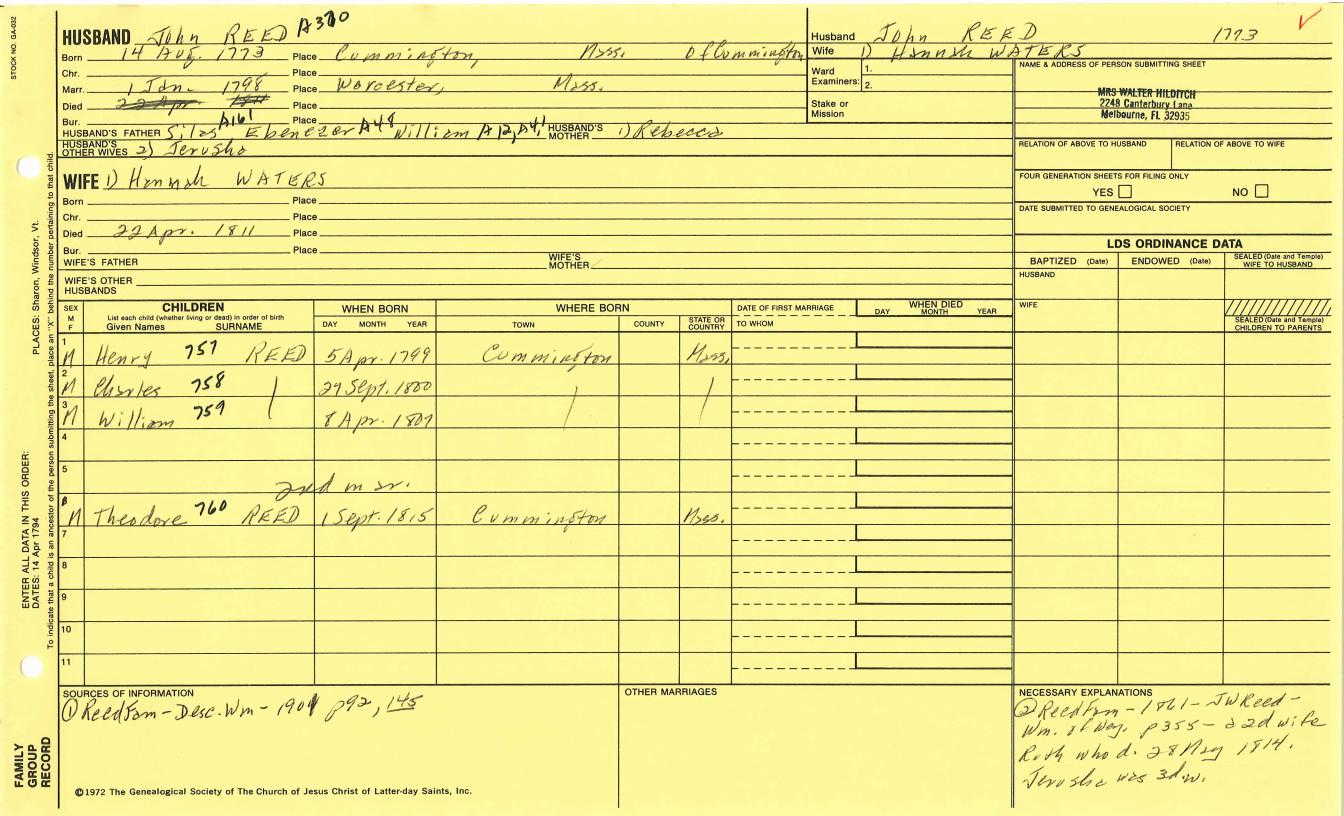 STOCK NO. GA-032
HUSBAND John REED A370
Born 14 Aug. 1773 Place Cummington, Mass. of Cummington
Chr. Place
Marr. 1 Jan. 1798 Place Worcester, Mass.
Died 22 Apr 1811 Place
Bur. Place
HUSBAND'S FATHER Silas A161 Ebenezer A48 William A12, A4, HUSBAND'S MOTHER 1) Rebecca
HUSBAND'S OTHER WIVES 2) Jerusha
WIFE 1) Hannah WATERS
Born Place
Chr. Place
Died 22 Apr. 1811 Place
Bur. Place
WIFE'S FATHER WIFE'S MOTHER
WIFE'S OTHER HUSBANDS
Husband John REED 1773
Wife 1) Hannah WATERS
Ward Examiners: 1. 2.
Stake or Mission
NAME & ADDRESS OF PERSON SUBMITTING SHEET
MRS WALTER HILDITCH
2248 Canterbury Lane
Melbourne, FL 32935
RELATION OF ABOVE TO HUSBAND RELATION OF ABOVE TO WIFE
FOUR GENERATION SHEETS FOR FILING ONLY
YES NO
DATE SUBMITTED TO GENEALOGICAL SOCIETY
LDS ORDINANCE DATA
BAPTIZED (Date) ENDOWED (Date) SEALED (Date and Temple) WIFE TO HUSBAND
HUSBAND
WIFE
SEALED (Date and Temple) CHILDREN TO PARENTS
SEX M F CHILDREN List each child (whether living or dead) in order of birth Given Names SURNAME WHEN BORN DAY MONTH YEAR WHERE BORN TOWN COUNTY STATE OR COUNTRY DATE OF FIRST MARRIAGE TO WHOM WHEN DIED DAY MONTH YEAR
1 M Henry 757 REED 5 Apr. 1799 Cummington Mass.
2 M Charles 758 29 Sept. 1800
3 M William 759 8 Apr. 1807
4
5
2nd mar.
6 M Theodore 760 REED 1 Sept. 1815 Cummington Mass.
7
8
9
10
11
SOURCES OF INFORMATION
① Reed Fam - Desc. Wm - 1901 p92, 145
OTHER MARRIAGES
NECESSARY EXPLANATIONS
② Reed Fam - 1861 - JW Reed -
Wm. of Wey. p355 - a 2d wife
Ruth who d. 28 May 1814.
Jerusha was 3d w.
©1972 The Genealogical Society of The Church of Jesus Christ of Latter-day Saints, Inc.
FAMILY GROUP RECORD
ENTER ALL DATA IN THIS ORDER:
DATES: 14 Apr 1794 PLACES: Sharon, Windsor, Vt.
To indicate that a child is an ancestor of the person submitting the sheet, place an "X" behind the number pertaining to that child.